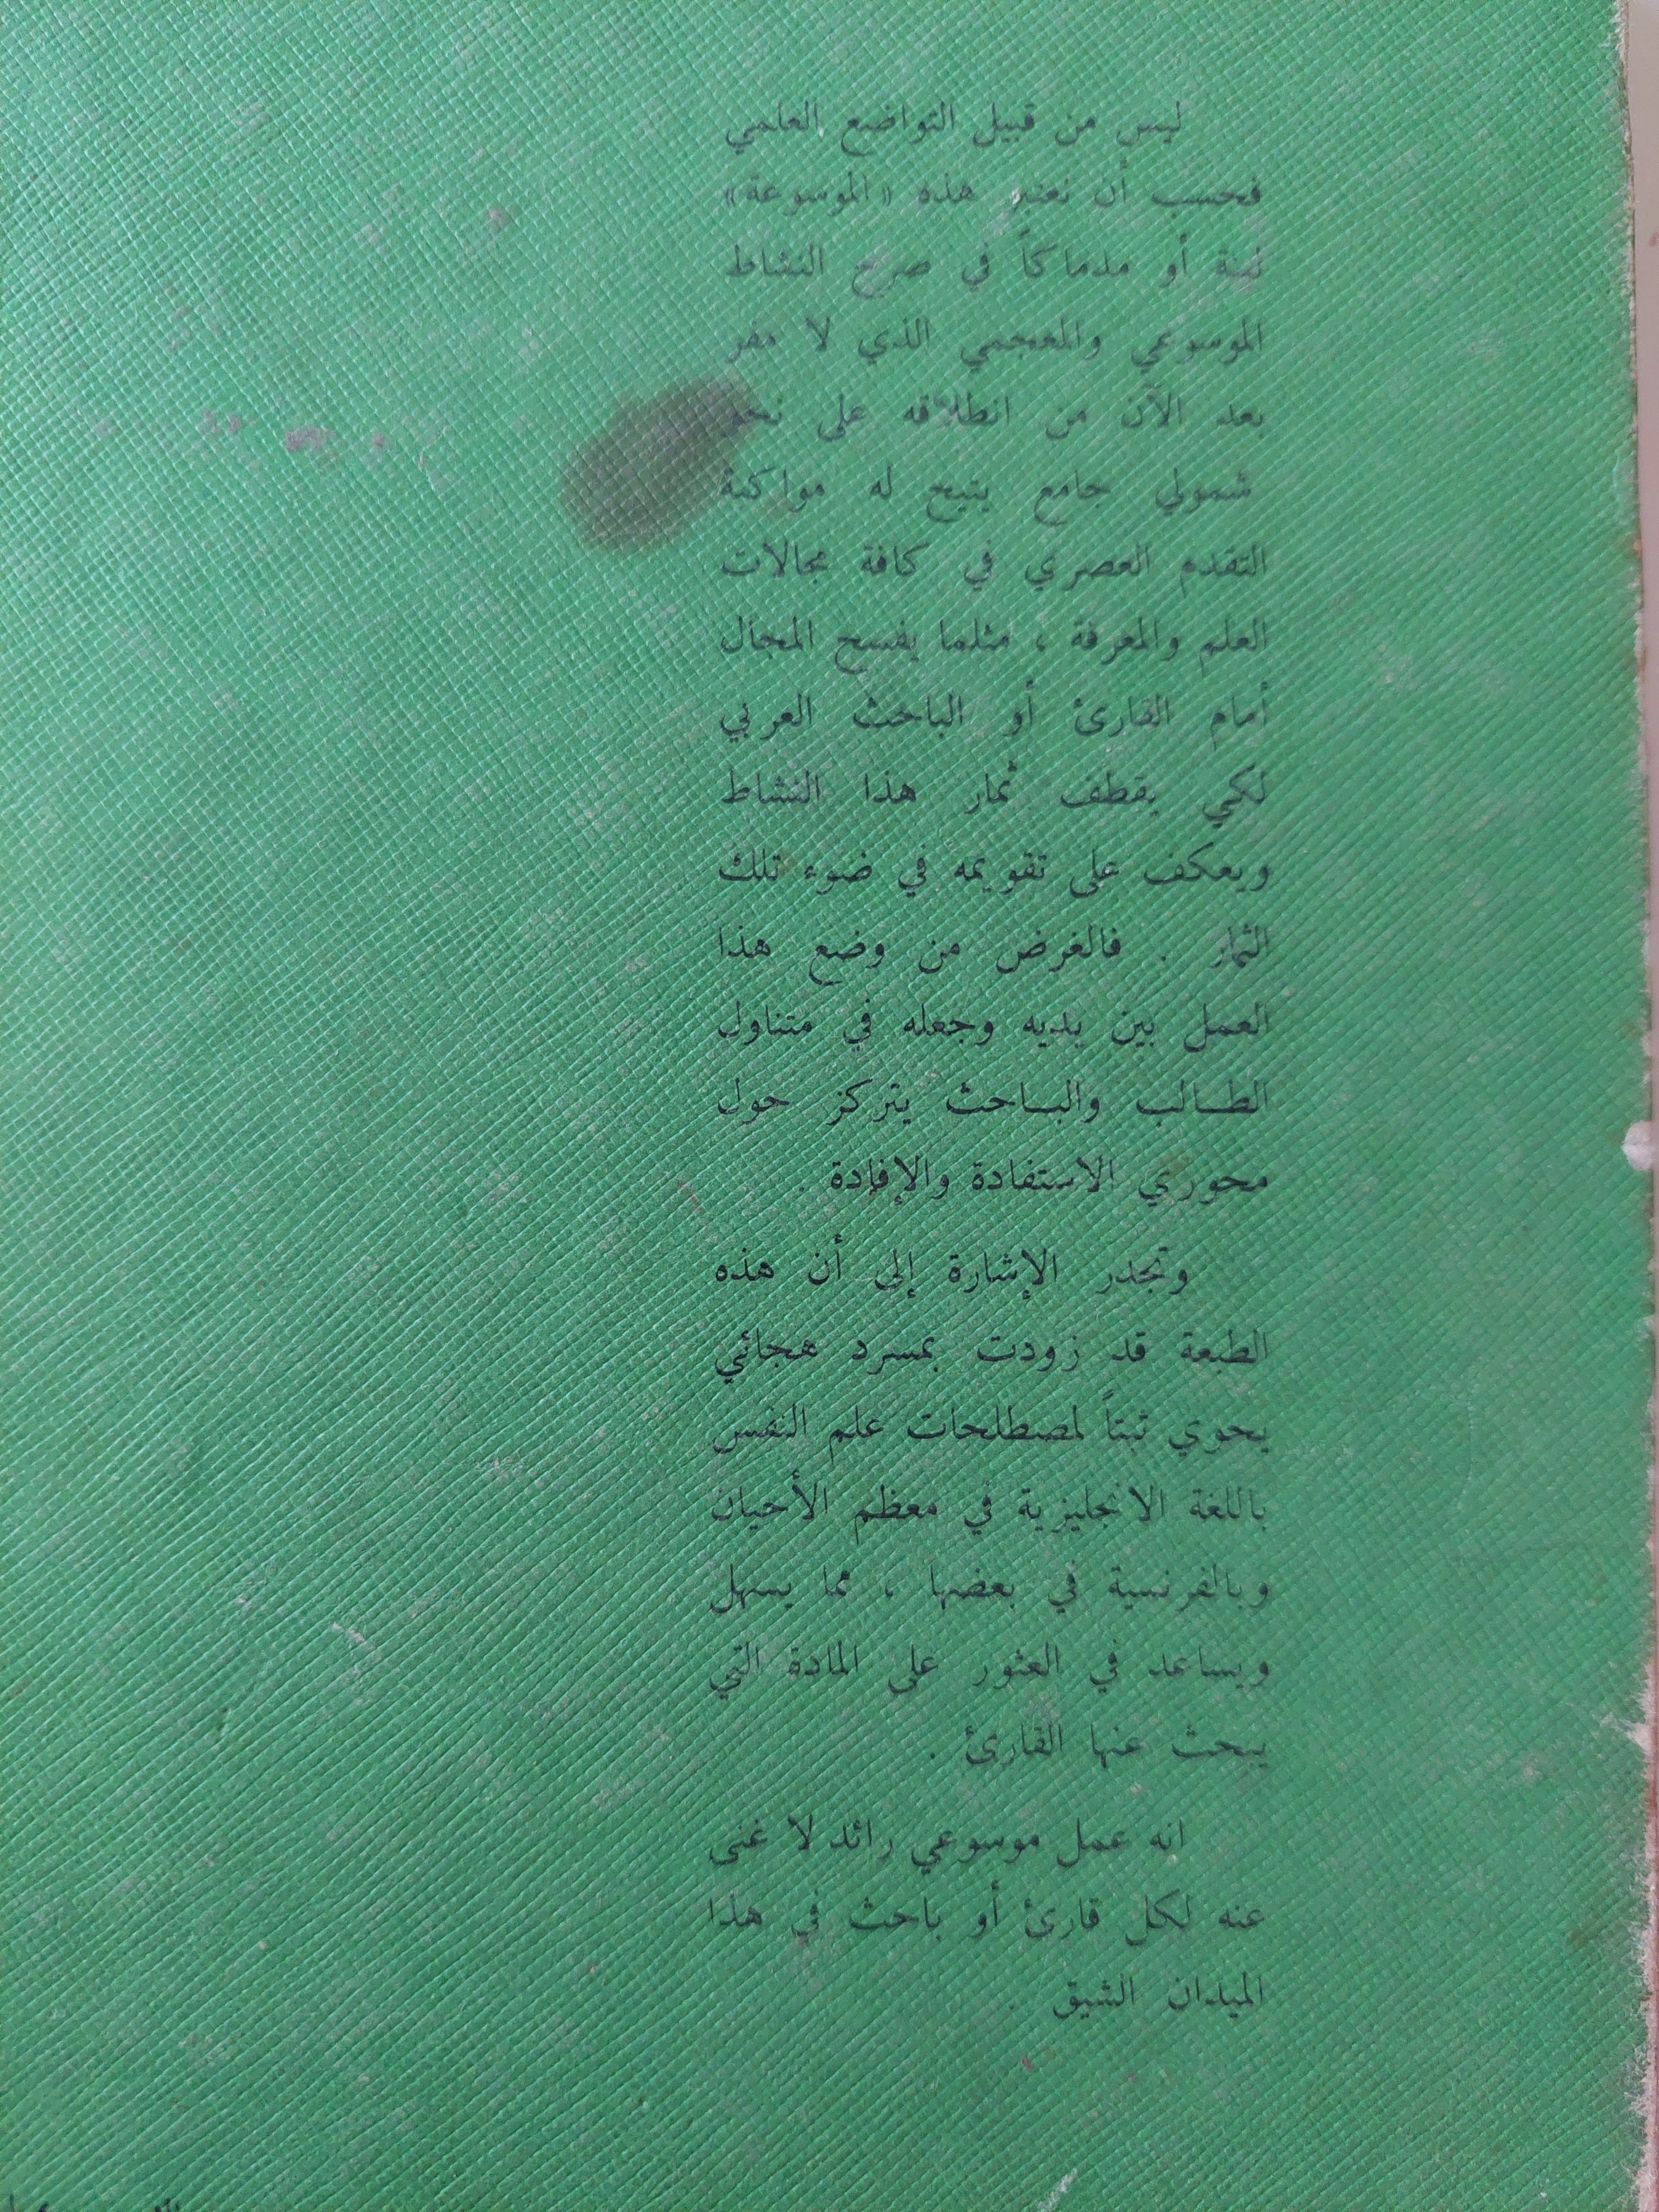 ليس من قبيل التواضع العلمي
فحسب أن نعتبر هذه «الموسوعة»
لبنة أو مدماكاً في صرح النشاط
الموسوعي والمعجمي الذي لا مفر
بعد الآن من انطلاقه على نحو
شمولي جامع يتيح له مواكبة
التقدم العصري في كافة مجالات
العلم والمعرفة ، مثلما يفسح المجال
أمام القارئ أو الباحث العربي
لكي يقطف ثمار هذا النشاط
ويعكف على تقويمه في ضوء تلك
الثمار . فالغرض من وضع هذا
العمل بين يديه وجعله في متناول
الطالب والباحث يتركز حول
محوري الاستفادة والإفادة .
وتجدر الإشارة إلى أن هذه
الطبعة قد زودت بمسرد هجائي
يحوي ثبتاً لمصطلحات علم النفس
باللغة الانجليزية في معظم الأحيان
وبالفرنسية في بعضها ، مما يسهل
ويساعد في العثور على المادة التي
يبحث عنها القارئ .
انه عمل موسوعي رائد لا غنى
عنه لكل قارئ أو باحث في هذا
الميدان الشيق .